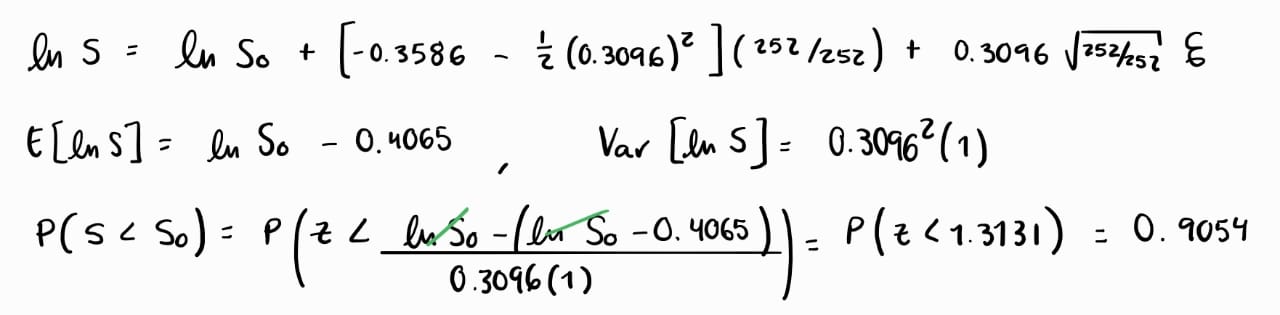 ln S = ln S₀ + [-0.3586 - ½ (0.3096)² ] (252/252) + 0.3096 √252/252 ε
E[ln S] = ln S₀ - 0.4065 , Var [ln S] = 0.3096²(1)
P(S < S₀) = P(z < (ln S₀ - (ln S₀ - 0.4065)) / 0.3096(1)) = P(z < 1.3131) = 0.9054